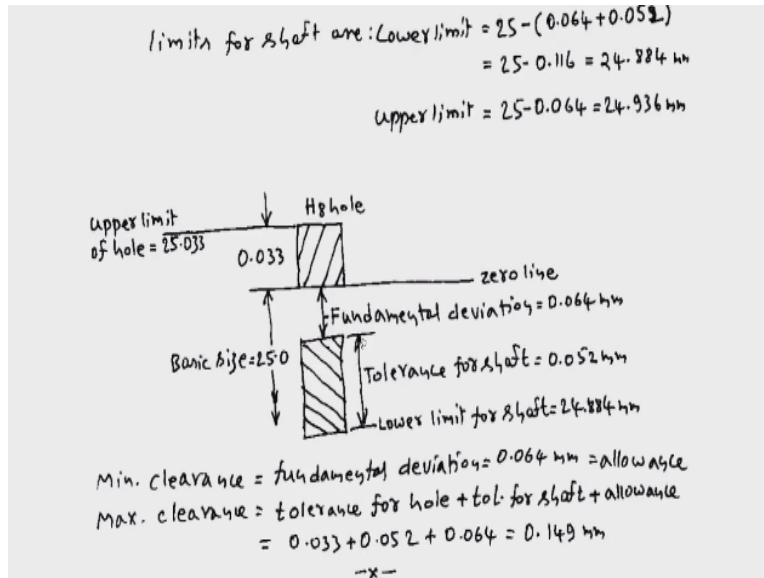 limits for shaft are: Lower limit = 25-(0.064+0.052)
= 25-0.116 = 24.884 mm
upper limit = 25-0.064 = 24.936 mm
H8 hole
upper limit
of hole = 25.033
0.033
zero line
Fundamental deviation = 0.064 mm
Basic size = 25.0
Tolerance for shaft = 0.052 mm
Lower limit for shaft = 24.884 mm
Min. clearance = fundamental deviation = 0.064 mm = allowance
Max. clearance = tolerance for hole + tol. for shaft + allowance
= 0.033+0.052+0.064 = 0.149 mm
-x-